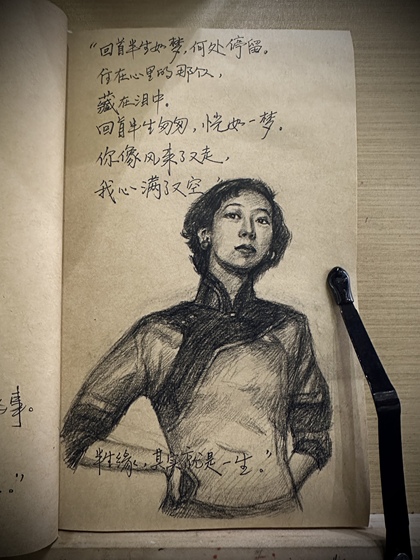 “回首半生如梦,何处停留。
住在心里的那个人,
藏在泪中。
回首半生匆匆,恍如一梦。
你像风来了又走,
我心满了又空
半生缘,其实就是一生。”
事。